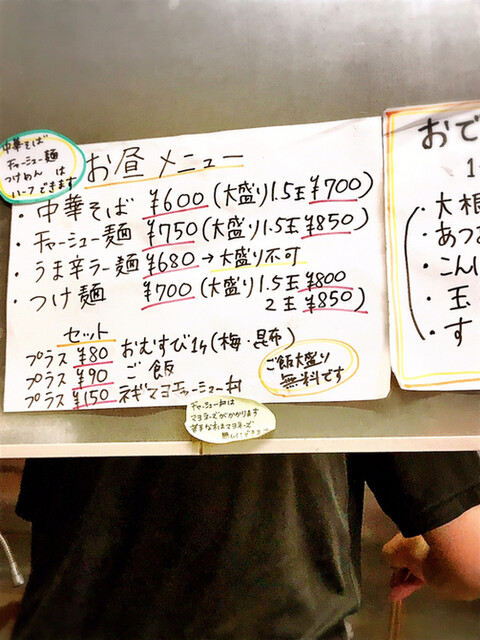 中華そば
チャーシュー麺
つけめん は
ハーフできます
お昼メニュー
・中華そば ¥600(大盛り1.5玉 ¥700)
・チャーシュー麺 ¥750(大盛り1.5玉 ¥850)
・うま辛ラー麺 ¥680→大盛り不可
・つけ麺 ¥700(大盛り1.5玉 ¥800
2玉 ¥850)
セット
プラス ¥80 おむすび1ヶ(梅・昆布)
プラス ¥90 ご飯
プラス ¥150 ネギマヨチャーシュー丼
ご飯大盛り
無料です
チャーシュー丼は
マヨネーズがかかります
苦手な方はマヨネーズ
無しにできます
おで
1
・大根
・あつあ
・こんに
・玉
・す